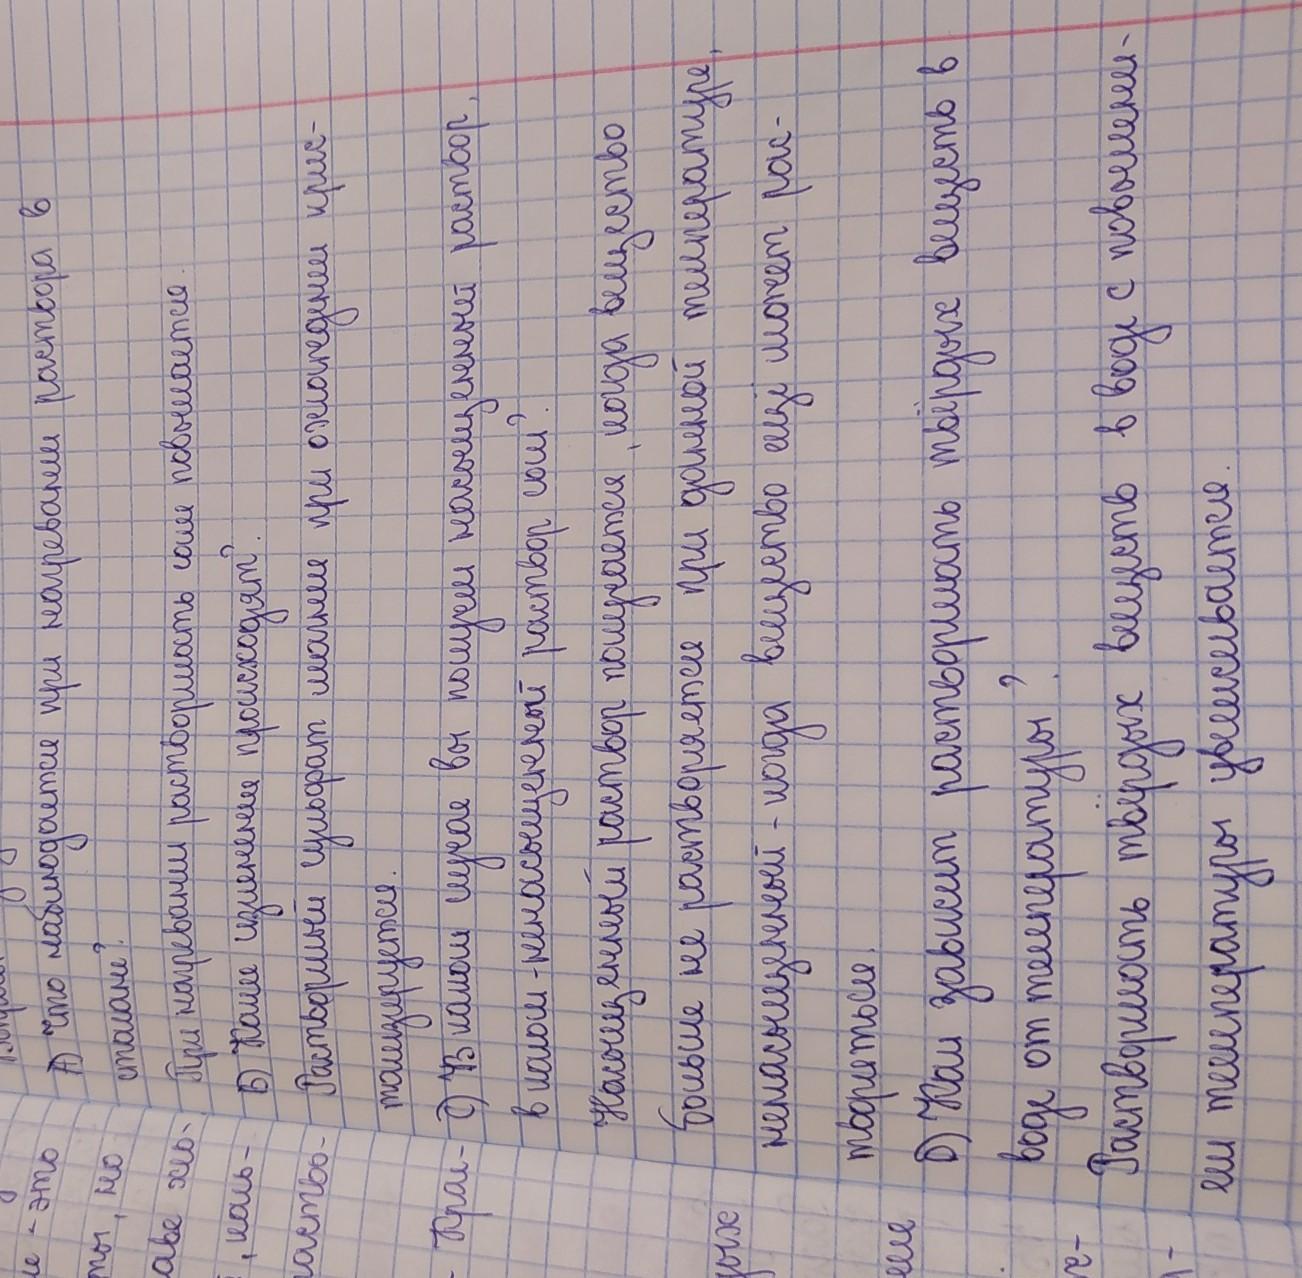 А) Что наблюдается при нагревание раствора в
стакане?
При нагревании растворимость соли повышается.
Б) Какие изменение происходят?
Растворимый сульфат магние при охлаждении крис-
тализируется.
С) В каком случае вы получим насыщенный раствор,
в каком - ненасыщенный раствор соли?
Насыщенный раствор получается, когда вещество
больше не растворяется при данной температуре,
ненасыщенный - когда вещество ещё может рас-
твориться.
D) Как зависит растворимость твёрдых веществ в
воде от температуры?
Растворимость твёрдых веществ в воде с повышени-
ем температуры увеличивается.
- это
ты, но
, каль-
раство-
- Кри-